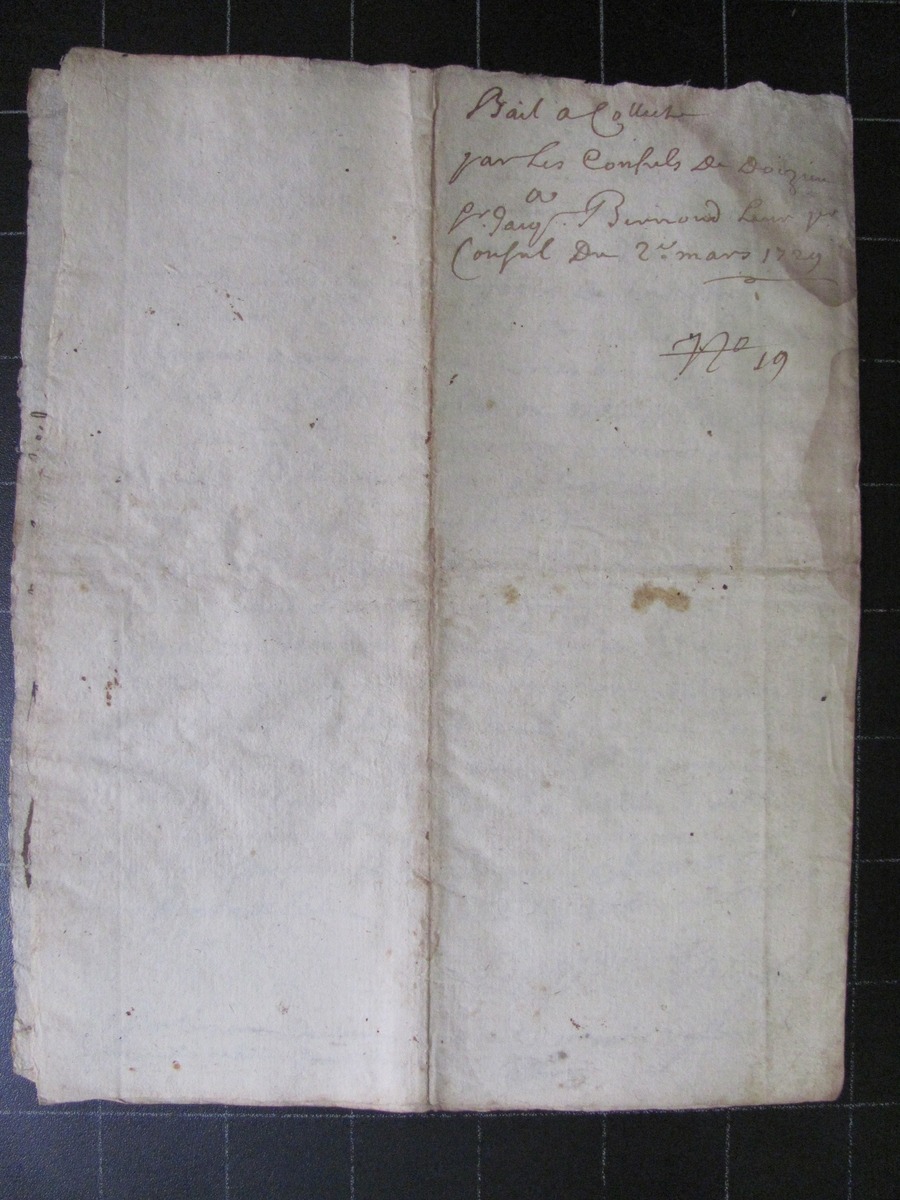 Bail a Collecte
par Les Consuls De Doizieu
a
Sr. Jacq. Bernoud Leur pr.
Consul Du 2e. mars 1729
No 19